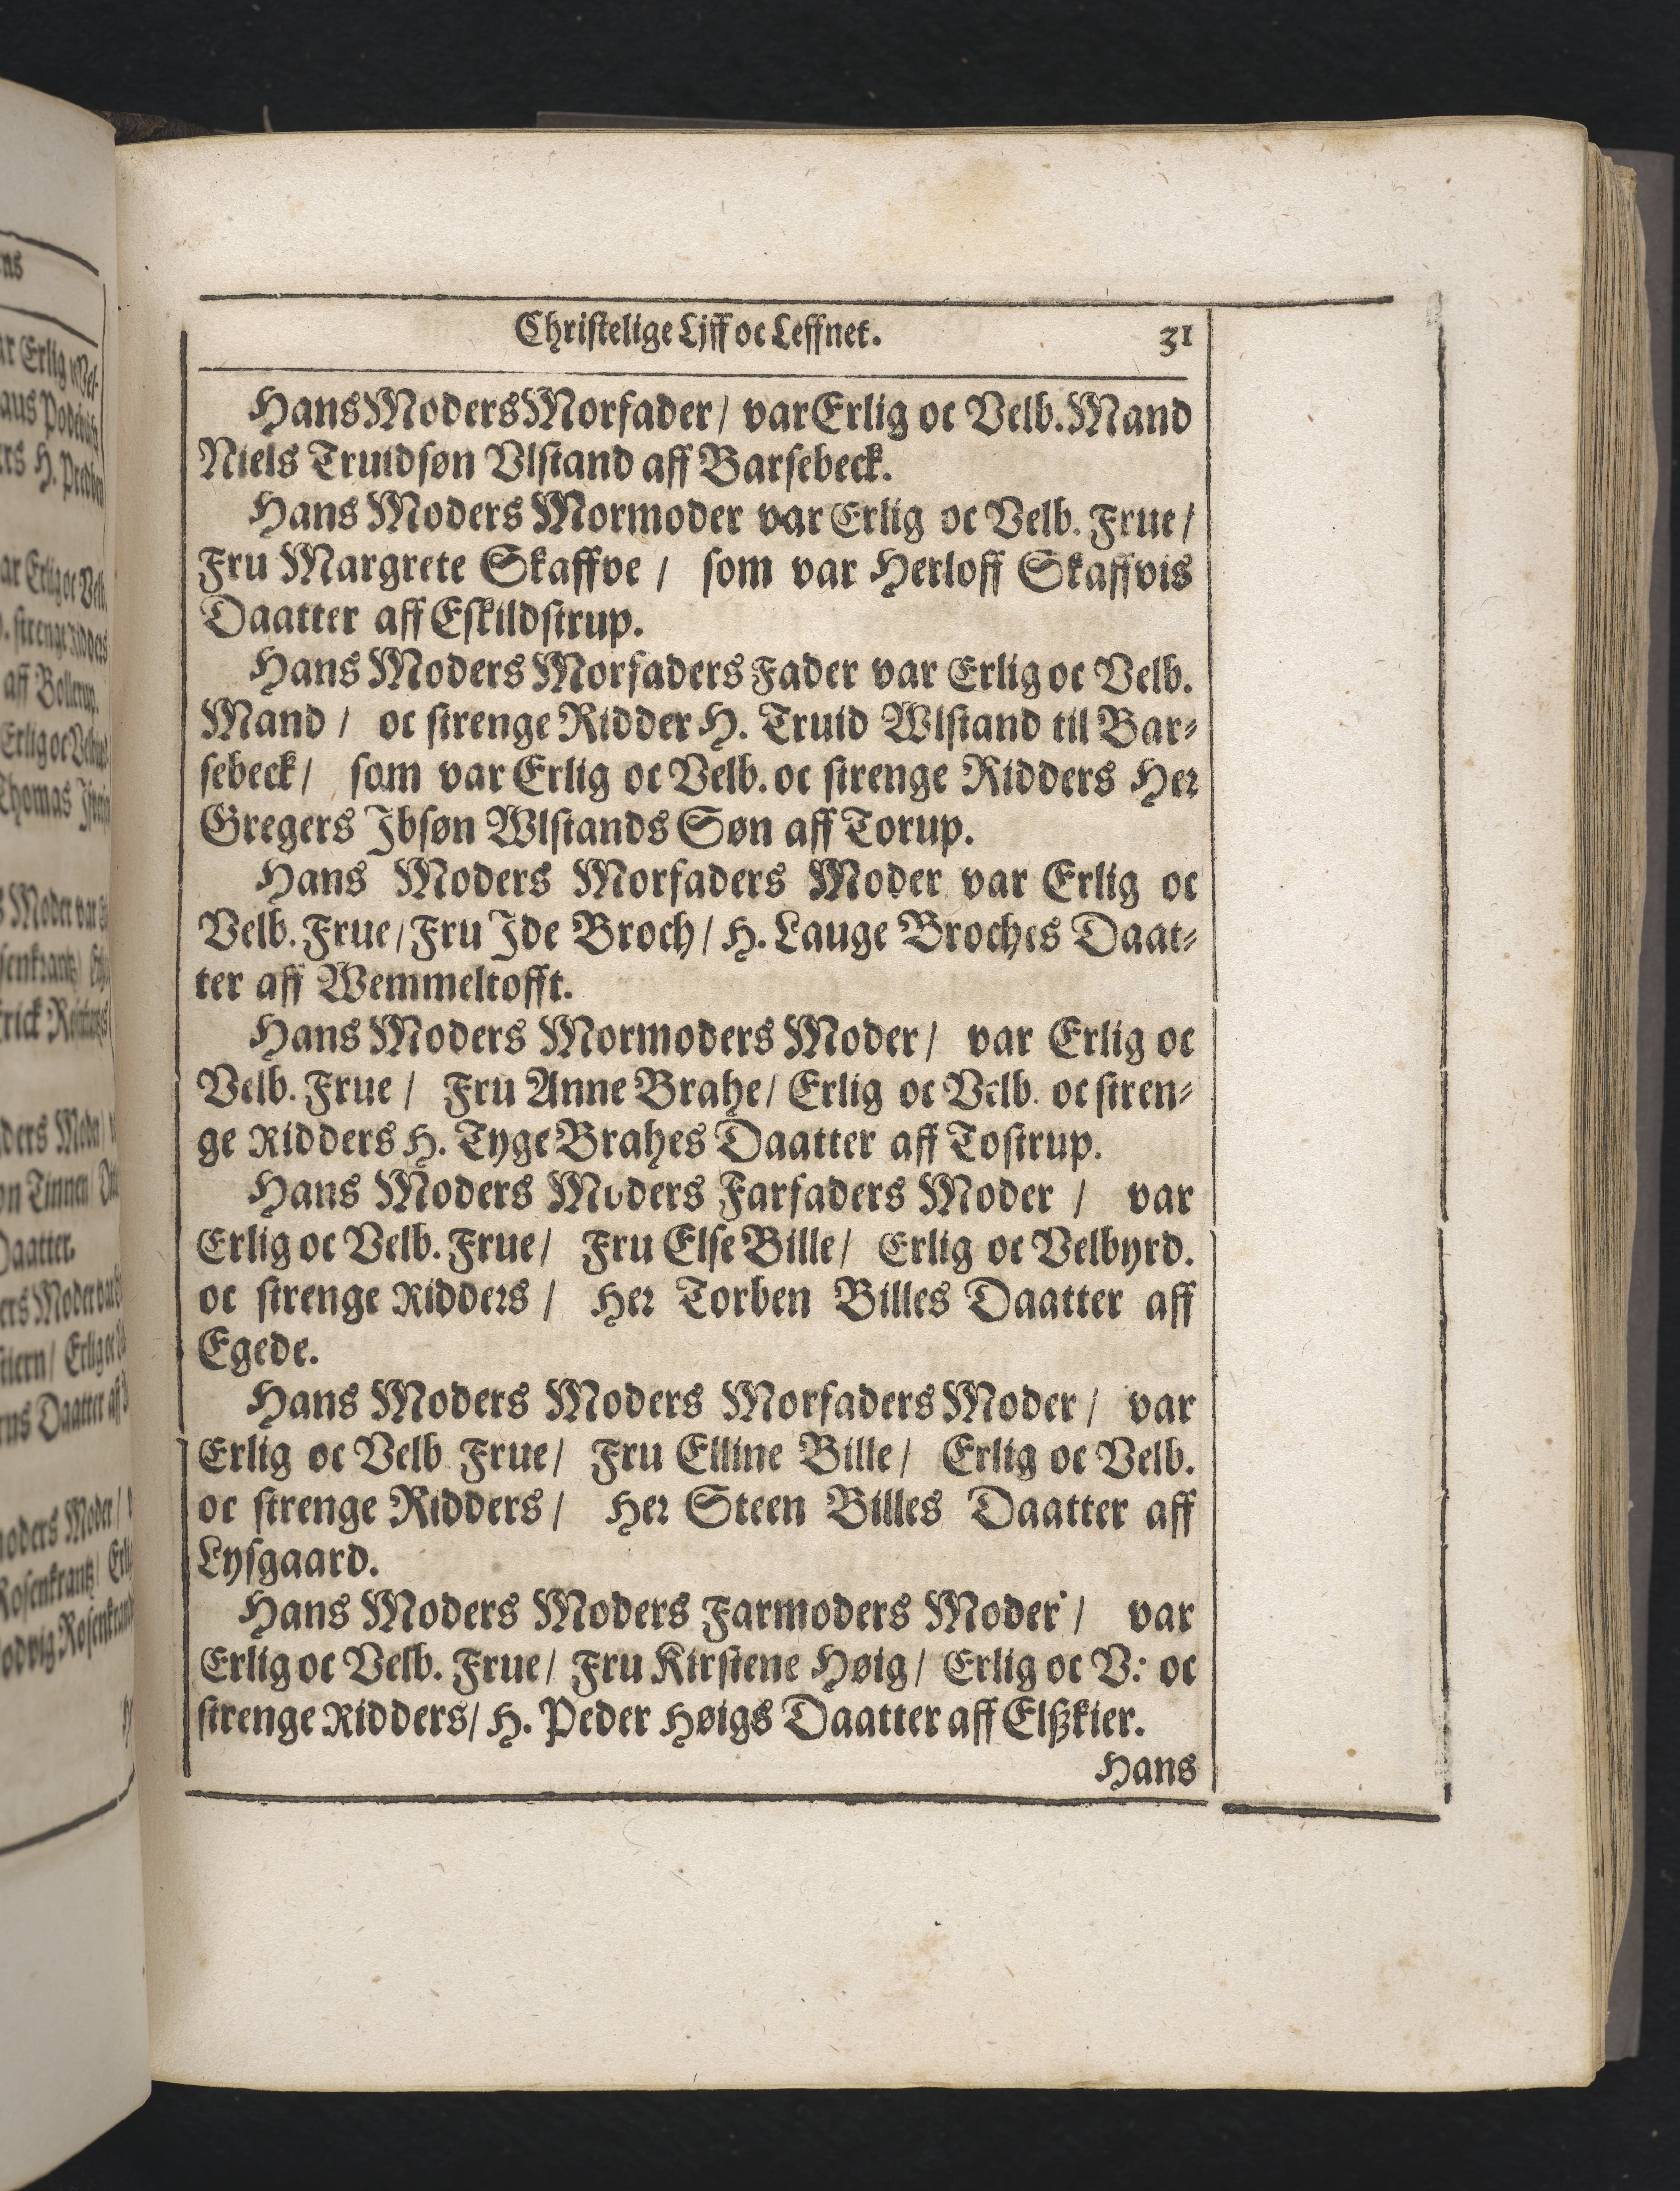 Christelige Ljff oc Leffnet. 31
Hans Moders Morfader / var Erlig oc Velb. Mand
Niels Truidsøn Vlstand aff Barsebeck.
Hans Moders Mormoder var Erlig oc Velb. Frue /
Fru Margrete Skaffve / som var Herloff Skaffvis
Daatter aff Eskildstrup.
Hans Moders Morfaders Fader var Erlig oc Velb.
Mand / oc strenge Ridder H. Truid Wlstand til Bar-
sebeck / som var Erlig oc Velb. oc strenge Ridders Her
Gregers Ibsøn Wlstands Søn aff Torup.
Hans Moders Morfaders Moder var Erlig oc
Velb. Frue / Fru Ide Broch / H. Lauge Broches Daat-
ter aff Wemmeltofft.
Hans Moders Mormoders Moder / var Erlig oc
Velb. Frue / Fru Anne Brahe / Erlig oc Velb. oc stren-
ge Ridders H. Tyge Brahes Daatter aff Tostrup.
Hans Moders Moders Farfaders Moder / var
Erlig oc Velb. Frue / Fru Else Bille / Erlig oc Velbyrd.
oc strenge Ridders / Her Torben Billes Daatter aff
Egede.
Hans Moders Moders Morfaders Moder / var
Erlig oc Velb Frue / Fru Elline Bille / Erlig oc Velb.
oc strenge Ridders / Her Steen Billes Daatter aff
Lysgaard.
Hans Moders Moders Farmoders Moder / var
Erlig oc Velb. Frue / Fru Kirstene Høig / Erlig oc V: oc
strenge Ridders / H. Peder Høigs Daatter aff Elßkier.
Hans